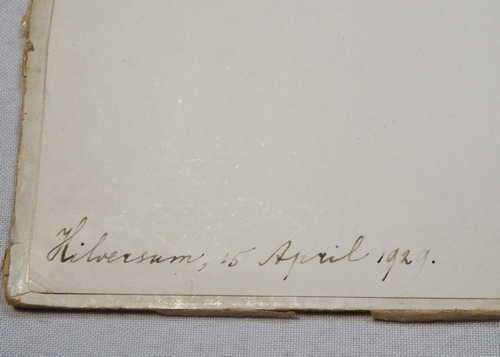 Hilversum, 15 April 1929.